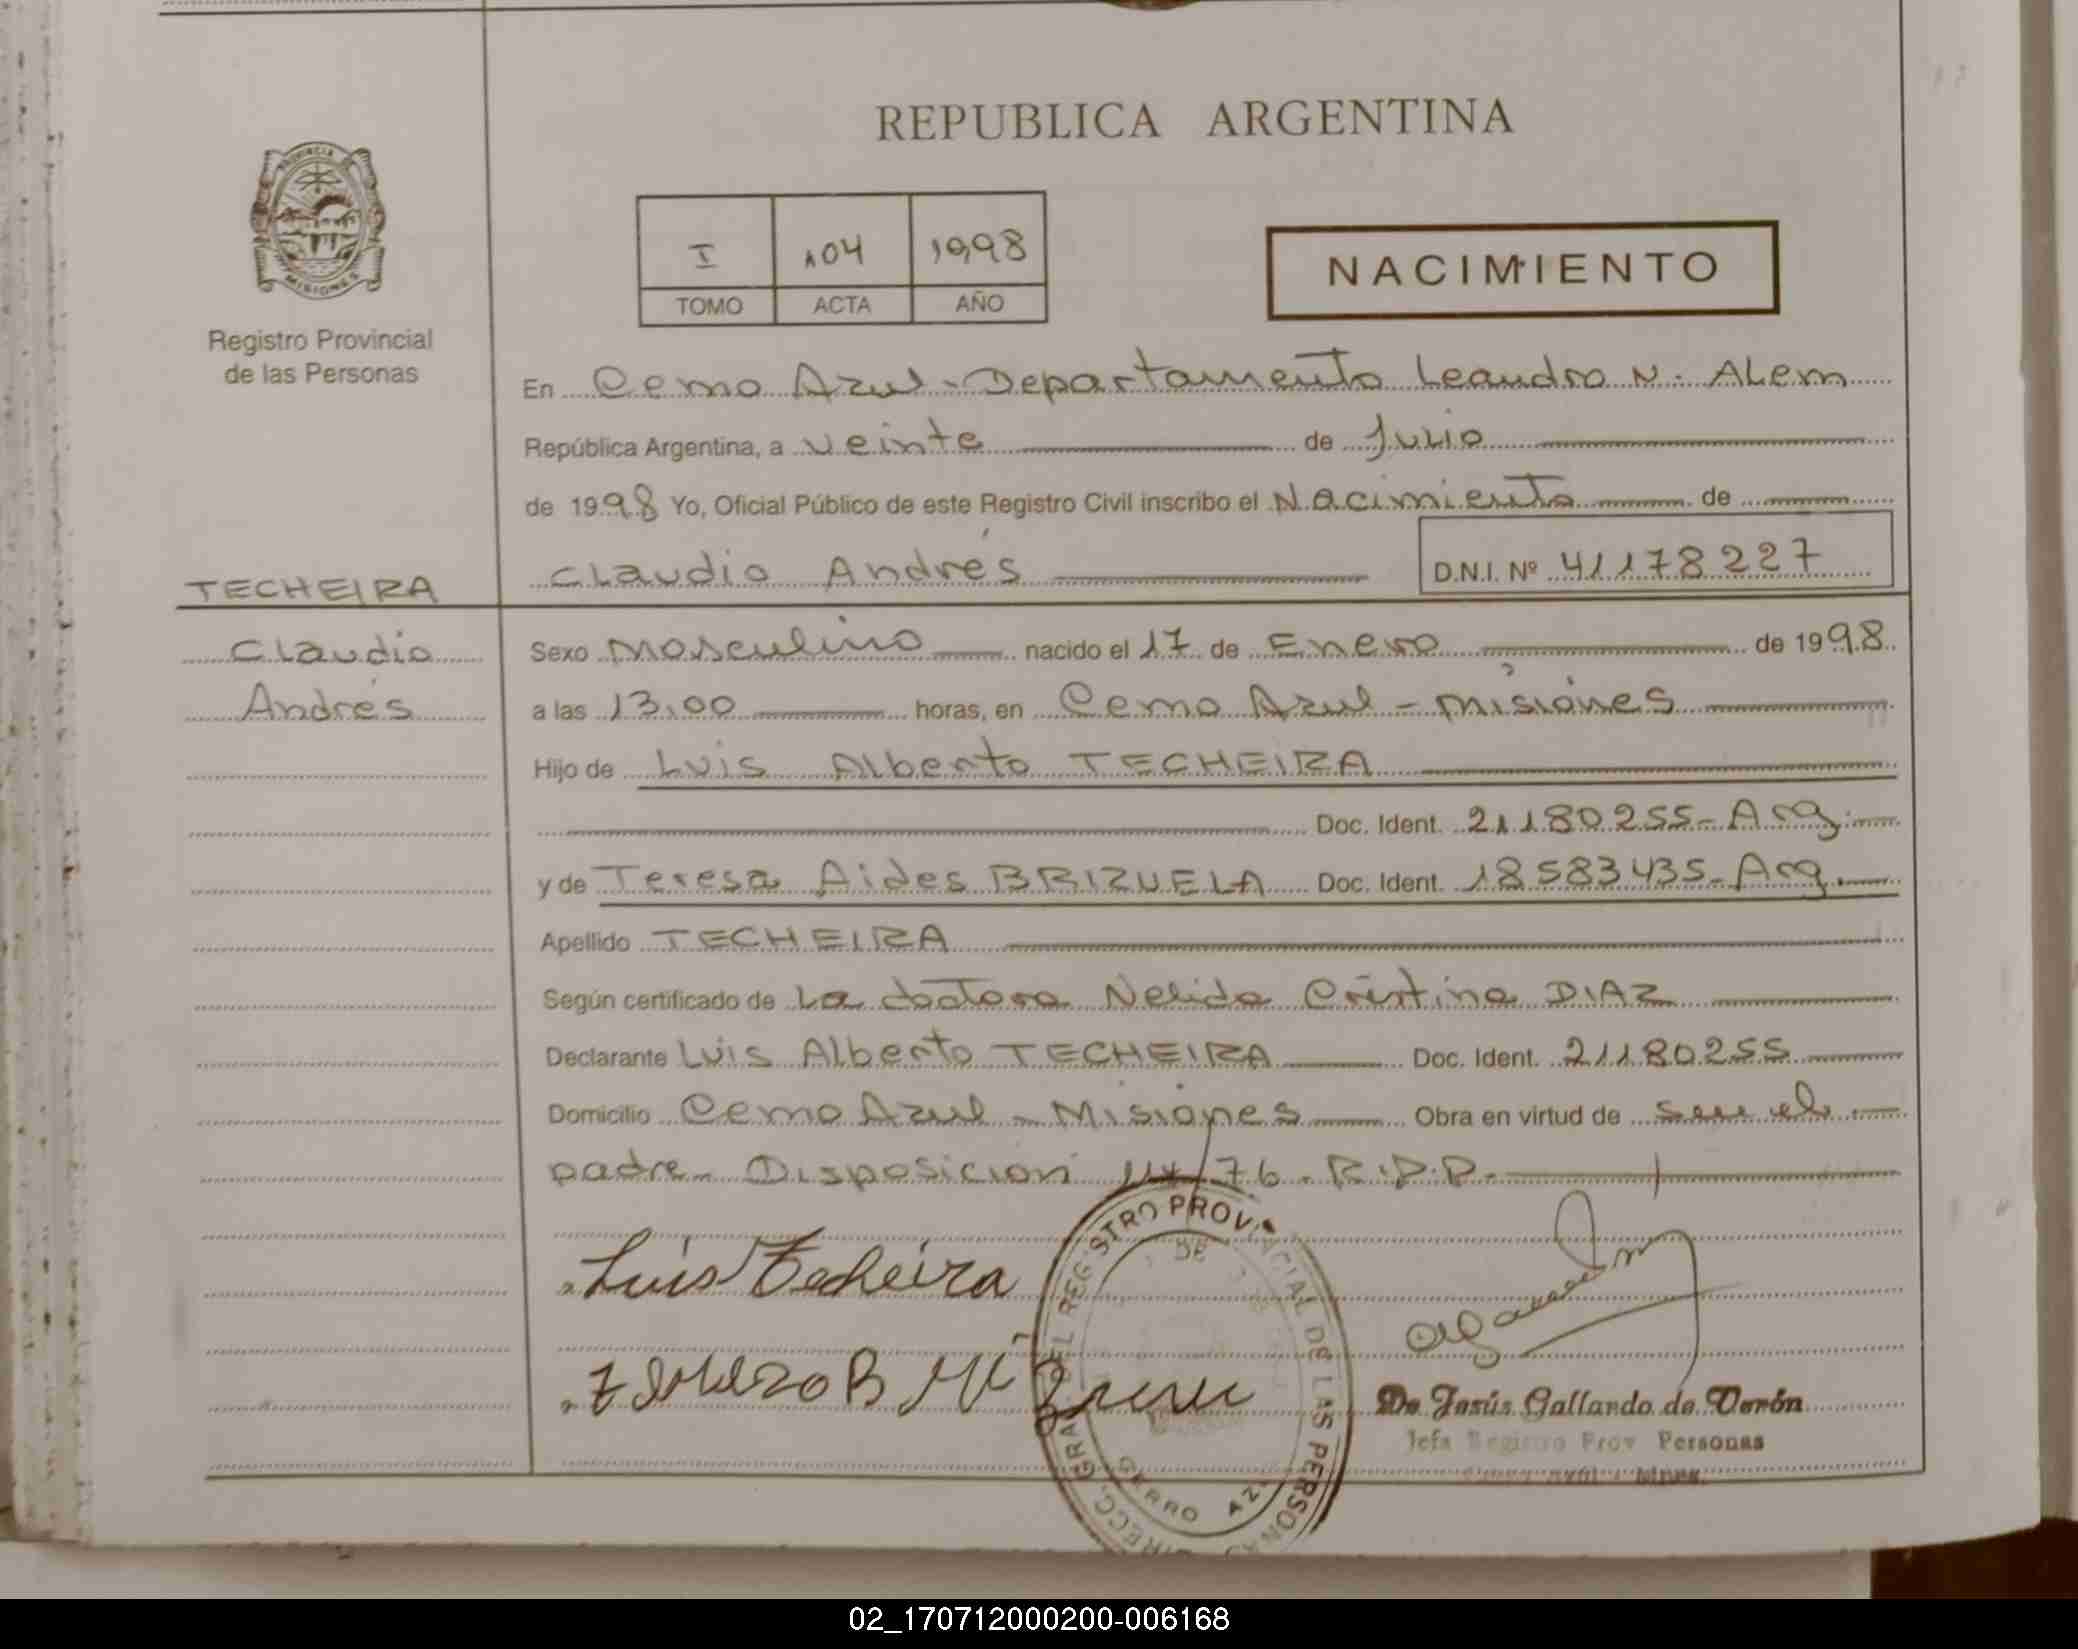 REPUBLICA ARGENTINA
PROVINCIA
MISIONES
Registro Provincial
de las Personas
I 104 1998
TOMO ACTA AÑO
NACIMIENTO
En Cerro Azul - Departamento Leandro N. Alem
República Argentina, a veinte de Julio
de 1998 Yo, Oficial Público de este Registro Civil inscribo el Nacimiento de
Claudio Andrés
D.N.I. Nº 41178227
TECHEIRA
Claudio
Andrés
Sexo Masculino nacido el 17 de Enero de 1998
a las 13,00 horas, en Cerro Azul - Misiones
Hijo de Luis Alberto TECHEIRA
Doc. Ident. 21180255 - Arg.
y de Teresa Aides BRIZUELA Doc. Ident. 18583435 - Arg.
Apellido TECHEIRA
Según certificado de La doctora Nelida Cristina DIAZ
Declarante Luis Alberto TECHEIRA Doc. Ident. 21180255
Domicilio Cerro Azul - Misiones Obra en virtud de ser el
padre - Disposición /76 - R.P.P.
Luis Techeira
DIRECC. GRAL. DEL REGISTRO PROVINCIAL DE LAS PERSONAS
DE
CERRO AZUL
De Jesús Gallardo de Verón
Jefa Registro Prov Personas
Cerro Azul - Mnes.
02_170712000200-006168